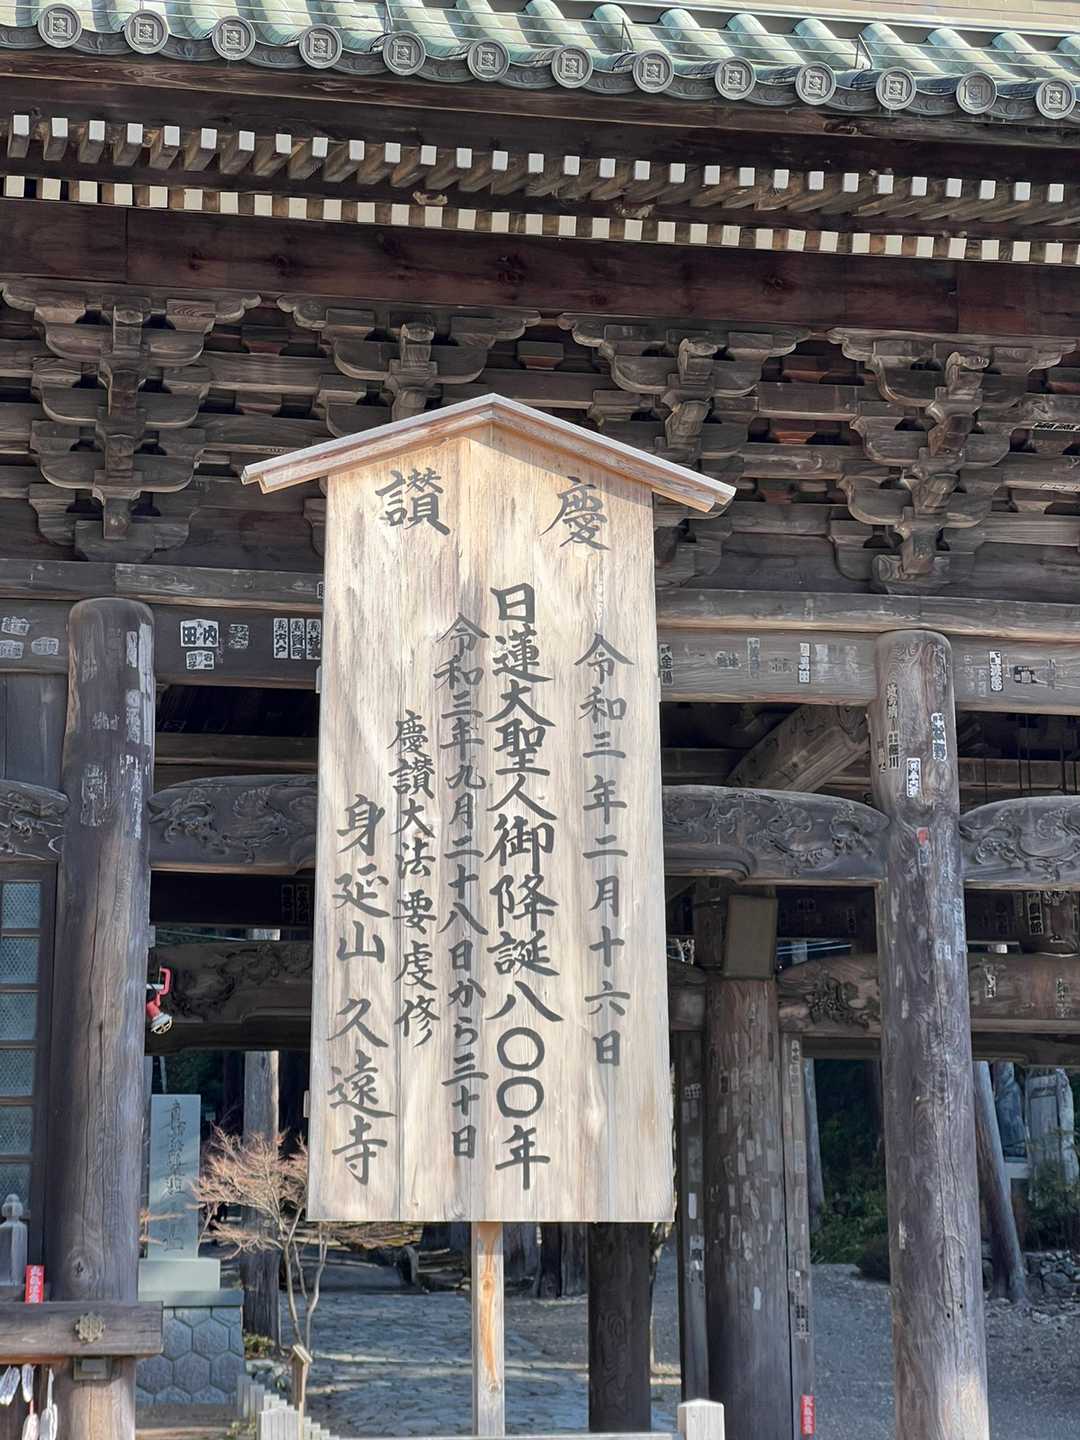 慶
讃
令和三年二月十六日
日蓮大聖人御降誕八〇〇年
令和三年九月二十八日から三十日
慶讃大法要虔修
身延山久遠寺